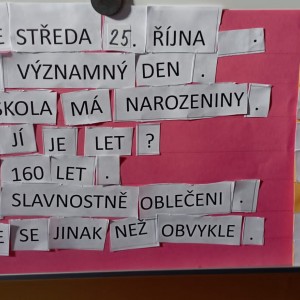 E STŘEDA 25. ŘÍJNA .
VÝZNAMNÝ DEN .
ŠKOLA MÁ NAROZENINY .
JÍ JE LET ?
160 LET .
SLAVNOSTNĚ OBLEČENI .
E SE JINAK NEŽ OBVYKLE .